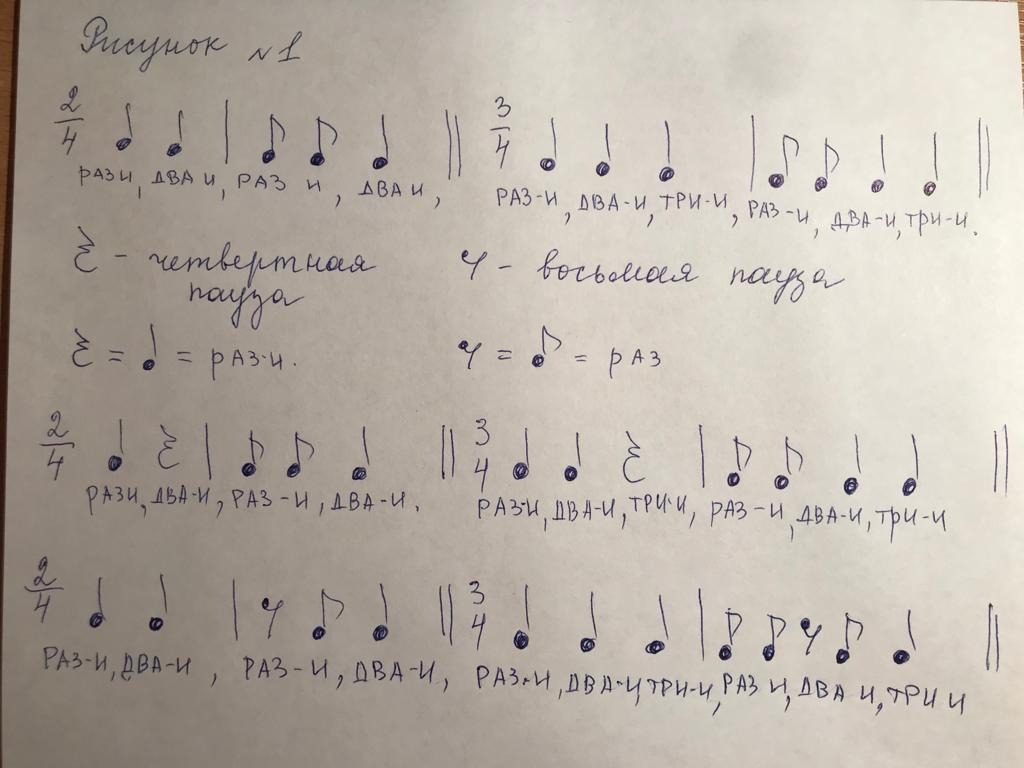 Рисунок №1
2/4 3/4
РАЗИ, ДВА И, РАЗ И, ДВА И, РАЗ-И, ДВА-И, ТРИ-И, РАЗ-И, ДВА-И, ТРИ-И.
- четвертная - восьмая пауза
пауза
= = РАЗ-И. = = РАЗ
2/4 3/4
РАЗИ, ДВА-И, РАЗ-И, ДВА-И. РАЗ-И, ДВА-И, ТРИ-И, РАЗ-И, ДВА-И, ТРИ-И
2/4 3/4
РАЗ-И, ДВА-И, РАЗ-И, ДВА-И, РАЗ-И, ДВА-И, ТРИ-И, РАЗ И, ДВА И, ТРИ И